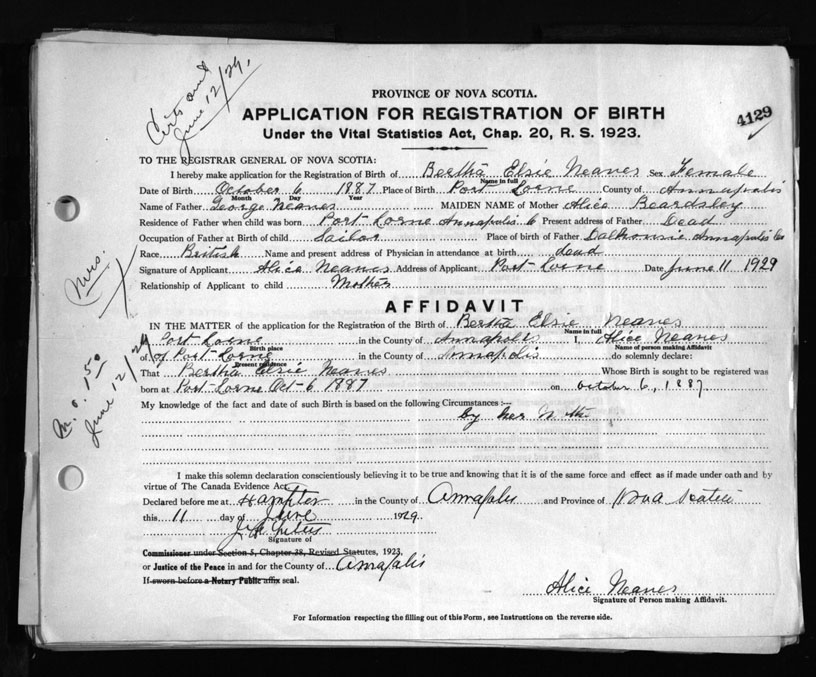 Certs and
June 12/29.
PROVINCE OF NOVA SCOTIA.
APPLICATION FOR REGISTRATION OF BIRTH
4129
Under the Vital Statistics Act, Chap. 20, R. S. 1923.
TO THE REGISTRAR GENERAL OF NOVA SCOTIA:
I hereby make application for the Registration of Birth of Bertha Elsie Neaves Sex Female
Name in full
Date of Birth October 6 1887 Place of Birth Port Lorne County of Annapolis
Month Day Year
Name of Father George Neaves MAIDEN NAME of Mother Alice Beardsley
Residence of Father when child was born Port Lorne Annapolis Present address of Father Dead
Occupation of Father at Birth of child Sailor Place of birth of Father Dalhousie Annapolis Co
Race British Name and present address of Physician in attendance at birth dead
Signature of Applicant Alice Neaves Address of Applicant Port Lorne Date June 11 1929
Relationship of Applicant to child Mother
Mrs.
AFFIDAVIT
IN THE MATTER of the application for the Registration of the Birth of Bertha Elsie Neaves
Name in full
Port Lorne in the County of Annapolis I, Alice Neaves
Birth place Name of person making Affidavit
of of Port Lorne in the County of Annapolis do solemnly declare:
Present residence
That Bertha Elsie Neaves Whose Birth is sought to be registered was
born at Port Lorne Oct 6 1887 on October 6, 1887
M.O. 1.50
June 12/29
My knowledge of the fact and date of such Birth is based on the following Circumstances :—
by her
I make this solemn declaration conscientiously believing it to be true and knowing that it is of the same force and effect as if made under oath and by
virtue of The Canada Evidence Act.
Declared before me at Hampton in the County of Annapolis and Province of Nova Scotia
this 11 day of June 1929
Signature of
Commissioner under Section 5, Chapter 38, Revised Statutes, 1923.
or Justice of the Peace in and for the County of Annapolis
If sworn before a Notary Public affix seal.
Alice Neaves
Signature of Person making Affidavit.
For Information respecting the filling out of this Form, see Instructions on the reverse side.